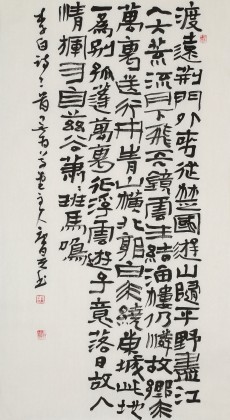 渡遠荆門外来從楚國遊山隨平野盡江
入大荒流月下飛天鏡雲生結海樓仍憐故鄉水
萬裏送行舟青山橫北郭白水繞東城此地
一為別孤蓬萬裏征浮雲遊子意落日故人
情揮手自兹去蕭〻班馬鳴
李白詩二首